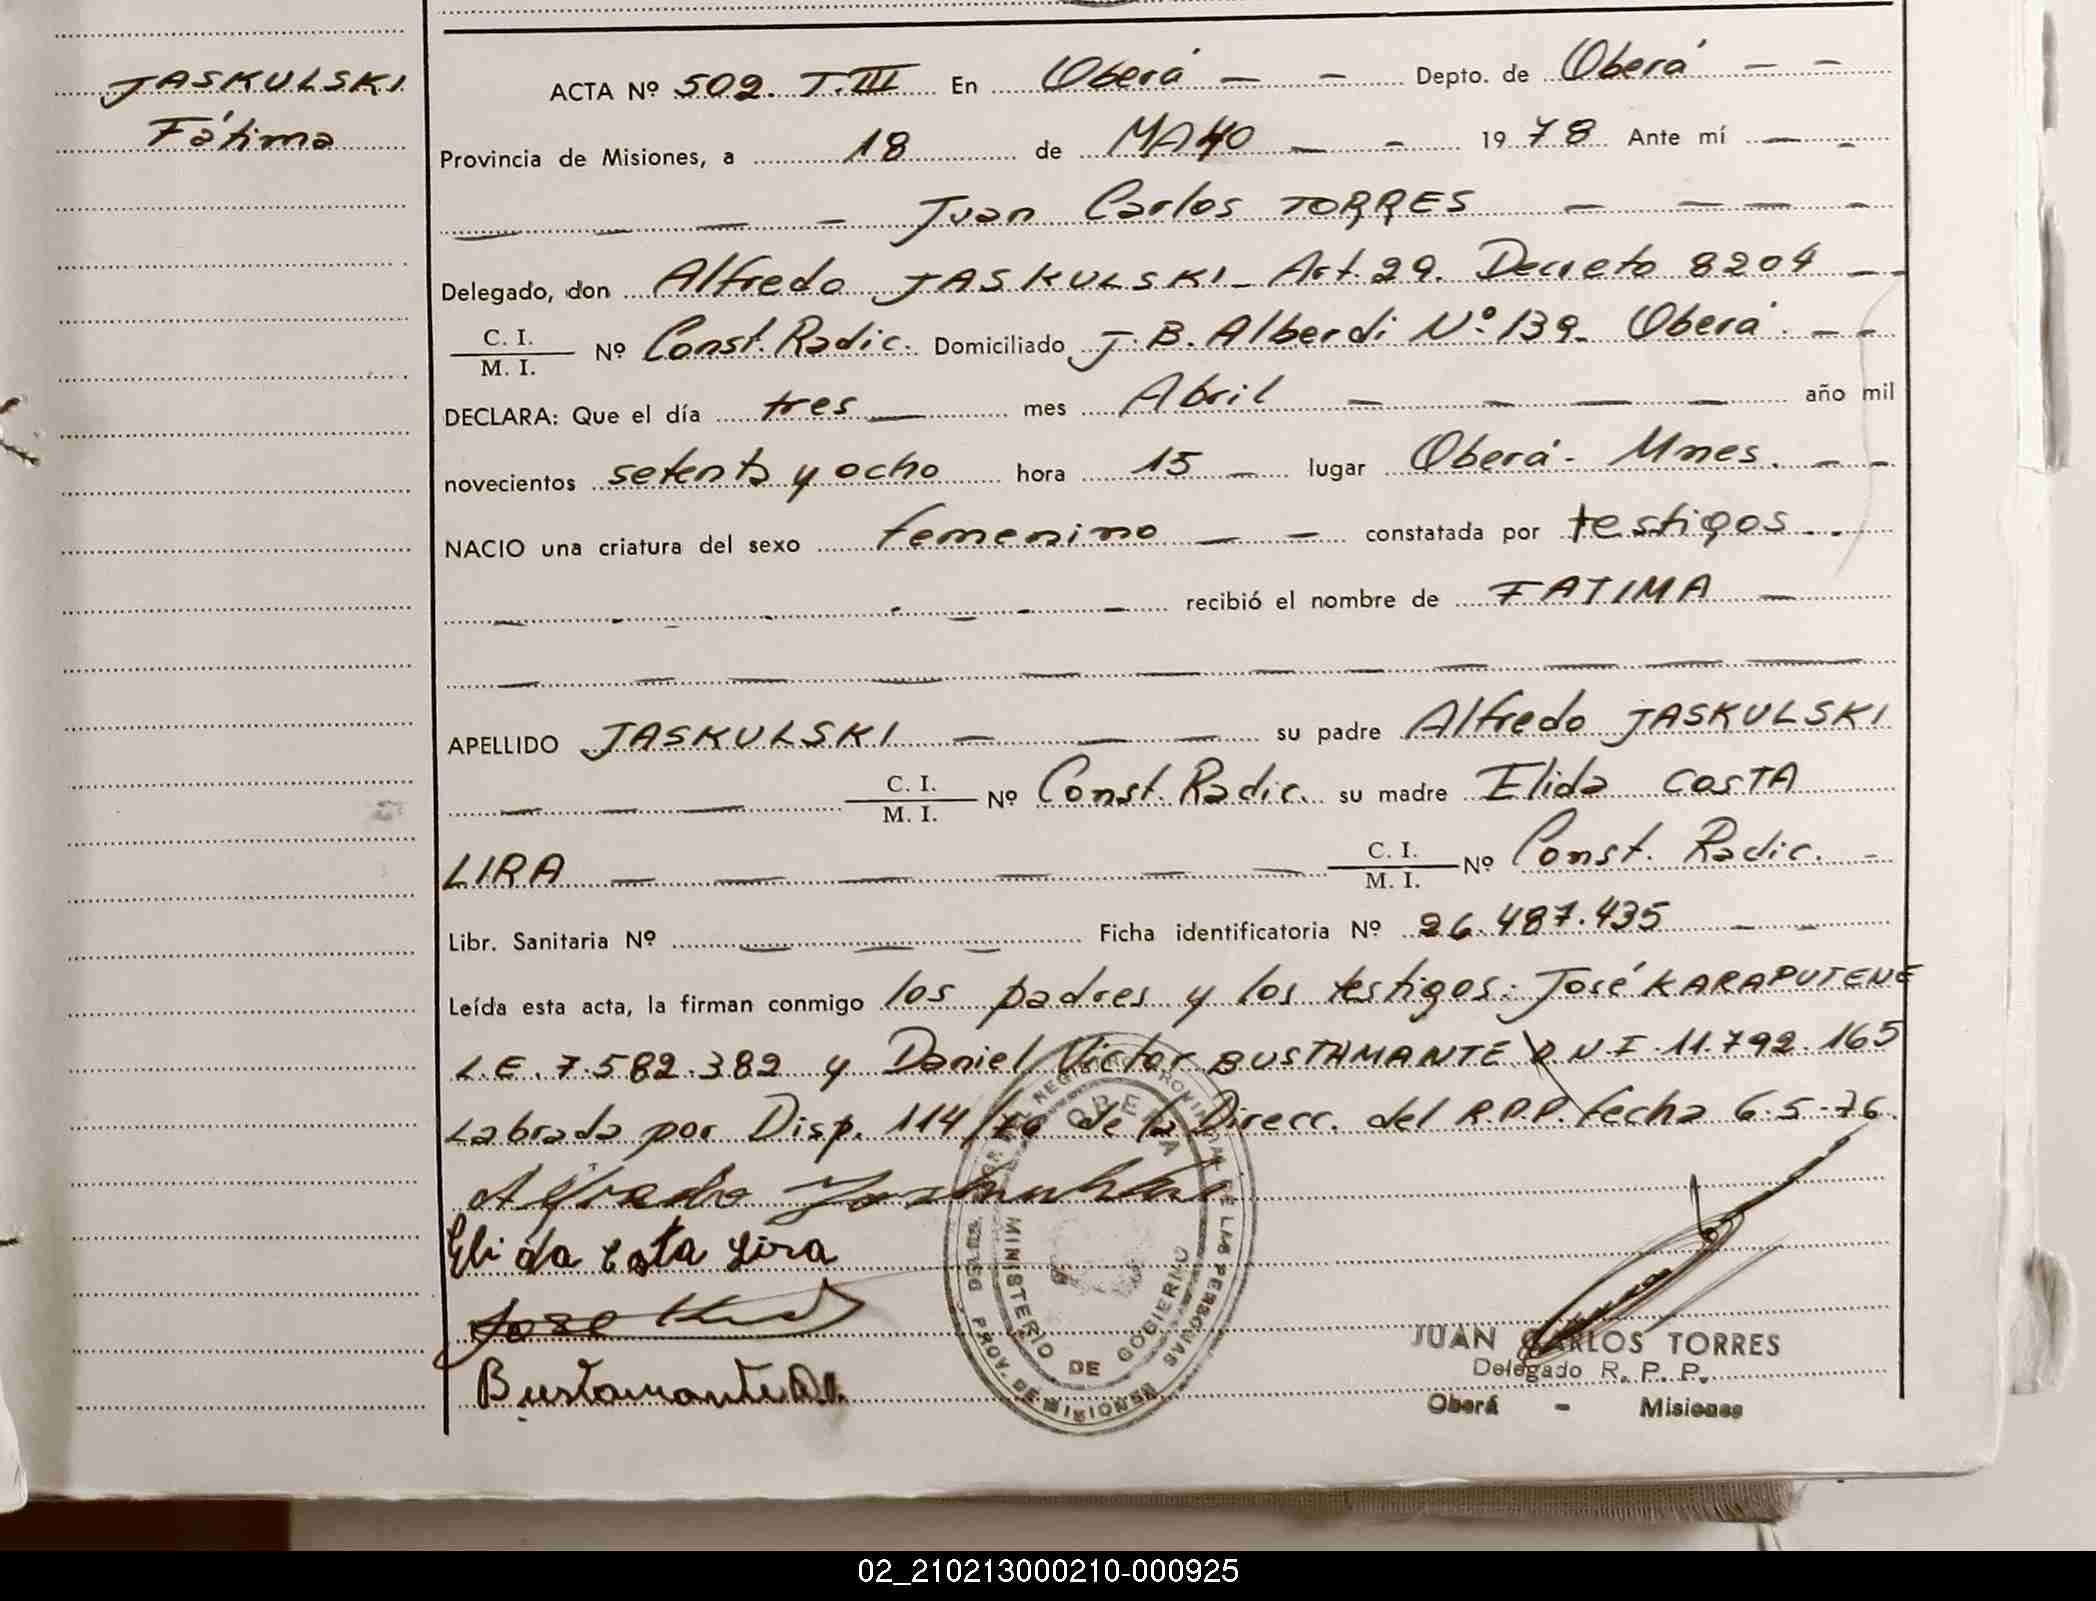 JASKULSKI
Fátima
ACTA Nº 502. T.III En Oberá — — Depto. de Oberá — —
Provincia de Misiones, a 18 de MAYO — — 1978 Ante mí — —
— — — — Juan Carlos TORRES — — — —
Delegado, don Alfredo JASKULSKI - Art. 29. Decreto 8204 — —
C. I.
M. I.
Nº Const. Radic. Domiciliado J. B. Alberdi Nº 139. Oberá. — —
DECLARA: Que el día tres — mes Abril — — — — año mil
novecientos setenta y ocho hora 15 — lugar Oberá - Mnes. — —
NACIO una criatura del sexo femenino — — constatada por testigos . .
recibió el nombre de FATIMA —
APELLIDO JASKULSKI — — — su padre Alfredo JASKULSKI
— — — C. I.
M. I.
Nº Const. Radic. su madre Elida COSTA
LIRA — — — — — — C. I.
M. I.
Nº Const. Radic. -
Libr. Sanitaria Nº — — — Ficha identificatoria Nº 26.487.435 — —
Leída esta acta, la firman conmigo los padres y los testigos: José KARAPUTENE
L.E. 7.582.382 y Daniel Victor BUSTAMANTE D.N.I. 11.792.165
Labrada por Disp. 114/76 de la Direcc. del R.P.P. fecha 6-5-76.
Alfredo Jaskulski
Elida Costa Lira
Jose
Bustamante D.V.
OBERA
MINISTERIO DE GOBIERNO
PROV. DE MISIONES
JUAN CARLOS TORRES
Delegado R. P. P.
Oberá - Misiones
02_210213000210-000925